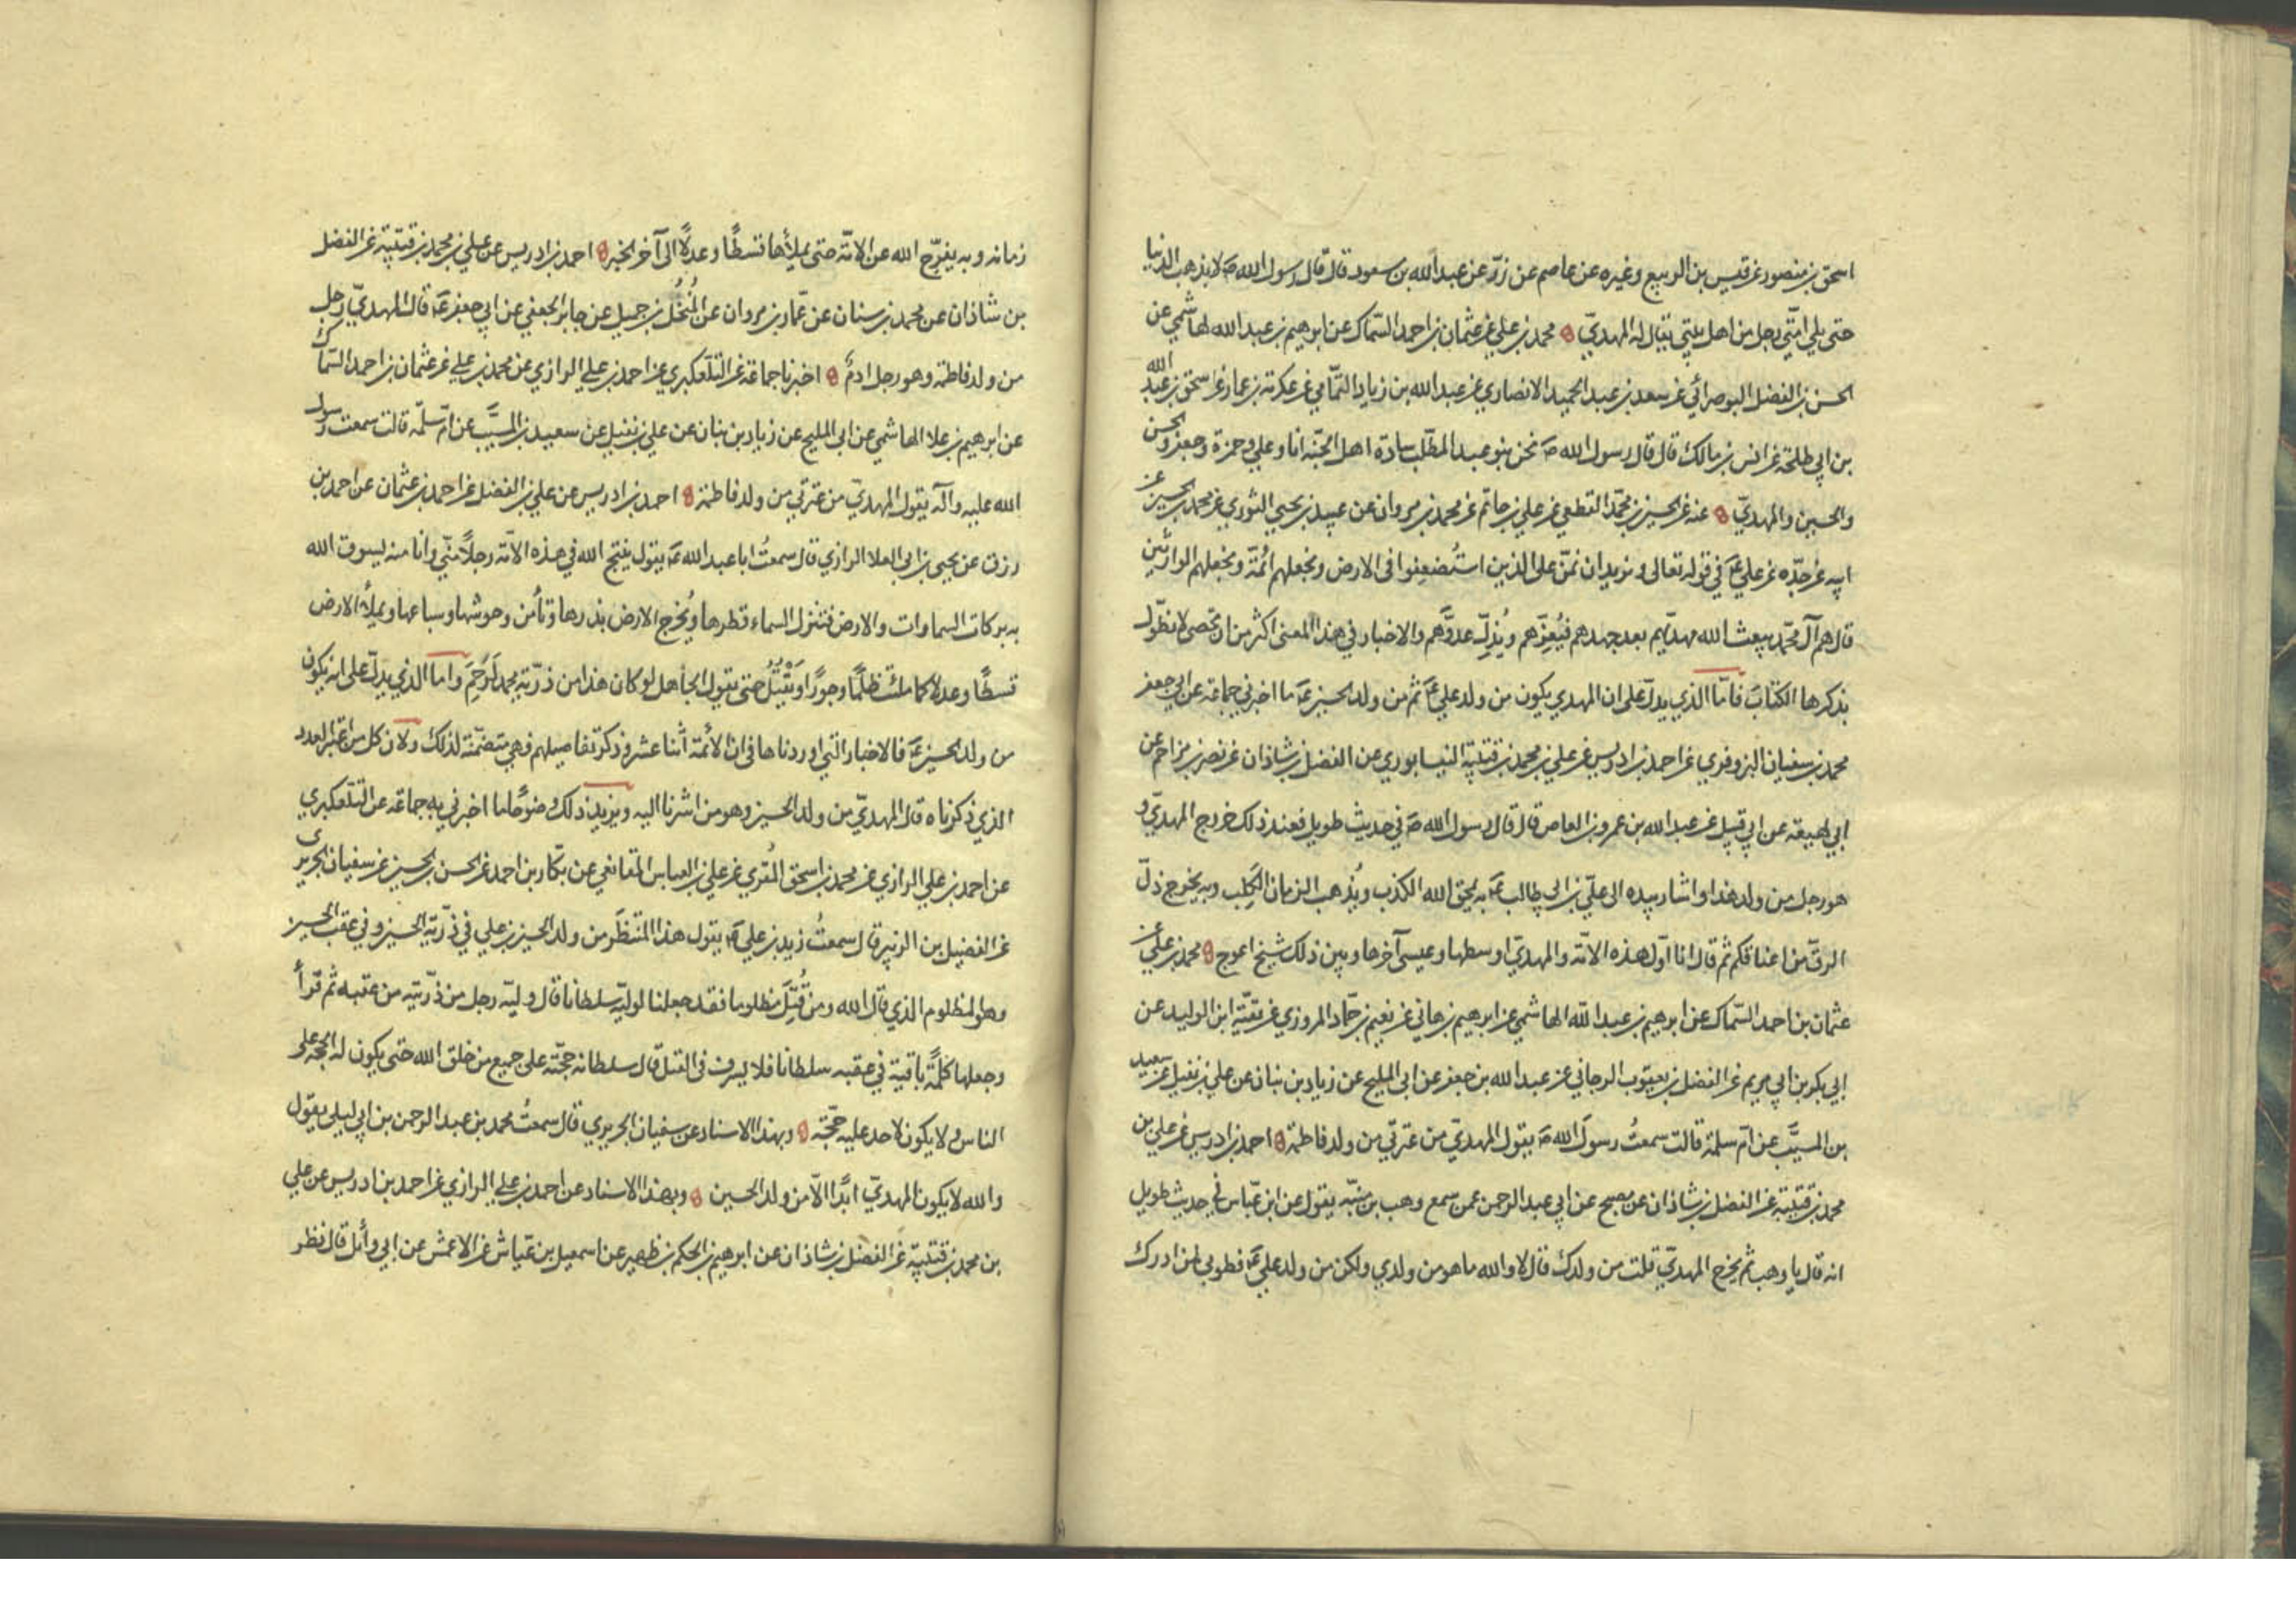 اسحق بن منصور عن قيس بن الربيع وغيره عن عاصم عن زرّ عن عبدالله بن مسعود قال قال رسول الله صَ لا يذهب الدنيا
حتى يلي امّتي رجل من اهل بيتي يقال له المهديّ محمد بن علي عن عثمان بن احمد السّماك عن ابرهيم بن عبدالله الهاشمي عن
الحسن بن الفضل البوصرائي عن سعد بن عبد الحميد الانصاري عن عبدالله بن زياد اليمّامي عن عكرمة بن عمار عن اسحق بن عبد الله
بن ابي طلحة عن انس بن مالك قال قال رسول الله صَ نحن بنو عبد المطّلب سادة اهل الجنّة انا وعلي وحمزة وجعفر والحسن
والحسين والمهديّ عنه عن الحسين بن محمّد القطعي عن علي بن حاتم عن محمد بن مروان عن عبيد بن يحيى الثوري عن محمد بن الحسين عن
ابيه عن جدّه عن علي عَ في قوله تعالى و نريد ان نمنّ على الذين استُضعِفوا فى الارض ونجعلهم ائمّة ونجعلهم الوارثين
قال هم آل محمّد يبعث الله مهديّهم بعد جهدهم فيُعِزّهم ويُذِلّ عدوَّهم والاخبار في هذا المعنى اكثر من ان تحصى لا نطوّل
بذكرها الكتابَ فامّا الذي يدلّ على ان المهدي يكون من ولد علي عَ ثم من ولد الحسين عَ ما اخبرني جماعة عن ابي جعفر
محمد بن سفيان البزوفري عن احمد بن ادريس عن علي بن محمد بن قتيبة النيسابوري عن الفضل بن شاذان عن نصر بن مزاحم عن
ابي لهيعة عن ابي قبيل عن عبدالله بن عمرو بن العاص قال قال رسول الله صَ في حديث طويل فعند ذلك خروج المهديّ و
هو رجل من ولد هذا واشار بيده الى عليّ بن ابي طالب عَ به يمحق الله الكذب ويُذهب الزمان الكَلِب وبه يخرج ذلّ
الرقّ من اعناقكم ثم قال انا اوّل هذه الامّة والمهديّ اوسطها وعيسى آخرها وبين ذلك شيخ اعوج محمد بن علي عن
عثمان بن احمد السّماك عن ابرهيم بن عبد الله الهاشمي عن ابرهيم بن هاني عن نعيم بن حمّاد المروزي عن بقيّة ابن الوليد عن
ابي بكر بن ابي مريم عن الفضل بن يعقوب الرجاني عن عبد الله بن جعفر عن ابى المليح عن زياد بن بنان عن علي بن نفيل عن سعيد
بن المسيَّب عن امّ سلمة قالت سمعتُ رسولَ الله صَ يقول المهديّ من عترتي من ولد فاطمة احمد بن ادريس عن علي بن
محمد بن قتيبة عن الفضل بن شاذان عن مصبح عن ابي عبد الرحمن عمن سمع وهب بن منبّه يقول عن ابن عبّاس في حديث طويل
انه قال يا وهب ثم يخرج المهديّ قلت من ولدك قال لا والله ما هو من ولدي ولكن من ولد علي عَ فطوبى لمن ادرك
زمانه وبه يفرّج الله عن الامّة حتى يملأها قسطًا وعدلًا الى آخر الخبر احمد بن ادريس عن علي بن محمد بن قتيبة عن الفضل
بن شاذان عن محمد بن سنان عن عمّار بن مروان عن المُنخّل بن جميل عن جابر الجعفي عن ابي جعفر عَ قال المهديّ رجل
من ولد فاطمة وهو رجل ادم اخبرنا جماعة عن التلّعكبري عن احمد بن علي الرازي عن محمد بن علي عن عثمان بن احمد السّماك
عن ابرهيم بن علا الهاشمي عن ابي المليح عن زياد بن بنان عن علي بن نفيل عن سعيد بن المسيَّب عن امّ سلمة قالت سمعت رسول
الله عليه وآله يقول المهديّ من عترتي من ولد فاطمة احمد بن ادريس عن علي بن الفضل عن احمد بن عثمان عن احمد بن
رزق عن يحيى بن ابي العلا الرازي قال سمعتُ ابا عبد الله عَ يقول ينتج الله في هذه الامّة رجلًا منّي وانا منه يسوق الله
به بركات السماوات والارض فتنزل السماء قطرها ويُخرج الارض بذرها وتأمن وحوشها وسباعها ويملأ الارض
قسطًا وعدلا كما ملئت ظلمًا وجورًا ويَقْتُلُ حتى يقول الجاهل لو كان هذا من ذرّية محمد لَرَحِمَ واما الذي يدلّ على انه يكون
من ولد الحسين عَ فالاخبار التي اوردناها في ان الأئمة اثنا عشر وذكر تفاصيلهم فهي متضمّنة لذلك ولان كل من اعتبر العدد
الذي ذكرناه قال المهديّ من ولد الحسين وهو من اشرنا اليه ويزيد ذلك وضوحًا ما اخبرني به جماعة عن التلّعكبري
عن احمد بن علي الرازي عن محمد بن اسحق المُقري عن علي بن العباس المقانعي عن بكّار بن احمد عن الحسن بن الحسين عن سفيان الجريري
عن الفضيل بن الزبير قال سمعتُ زيد بن علي عَ يقول هذا المنتظَر من ولد الحسين بن علي في ذرّية الحسين وفي عقب الحسين
وهو المظلوم الذي قال الله ومن قُتِلَ مظلوما فقد جعلنا لوليّه سلطانا قال وليّه رجل من ذرّيّته من عقبه ثم قرأ
وجعلها كلمةً باقية في عقبه سلطانا فلا يسرف في القتل قال سلطانه حجّته على جميع من خلق الله حتى يكون له الحجّة على
الناس ولا يكون لاحد عليه حجّة وبهذا الاسناد عن سفيان الجريري قال سمعتُ محمد بن عبد الرحمن بن ابي ليلى يقول
والله لا يكون المهديّ ابدًا الّا من ولد الحسين وبهذا الاسناد عن احمد بن علي الرازي عن احمد بن ادريس عن علي
بن محمد بن قتيبة عن الفضل بن شاذان عن ابرهيم بن الحكم بن ظهير عن اسمعيل بن عيّاش عن الاعمش عن ابي وائل قال نظر